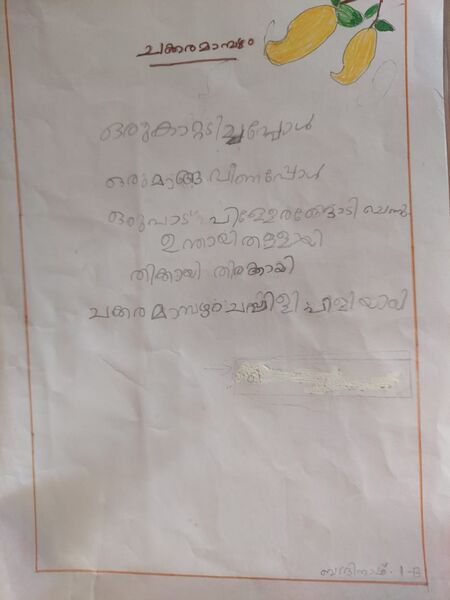 ചക്കരമാമ്പഴം
ഒരുകാറ്റടിച്ചപ്പോൾ
ഒരുമാങ്ങ വീണപ്പോൾ
ഒരുപാട് പിള്ളേരങ്ങോടി ചെന്നു
ഉന്തായി തള്ളായി
തിക്കായി തിരക്കായി
ചക്കര മാമ്പഴം ചപ്പിളി പിളിയായി
1-B